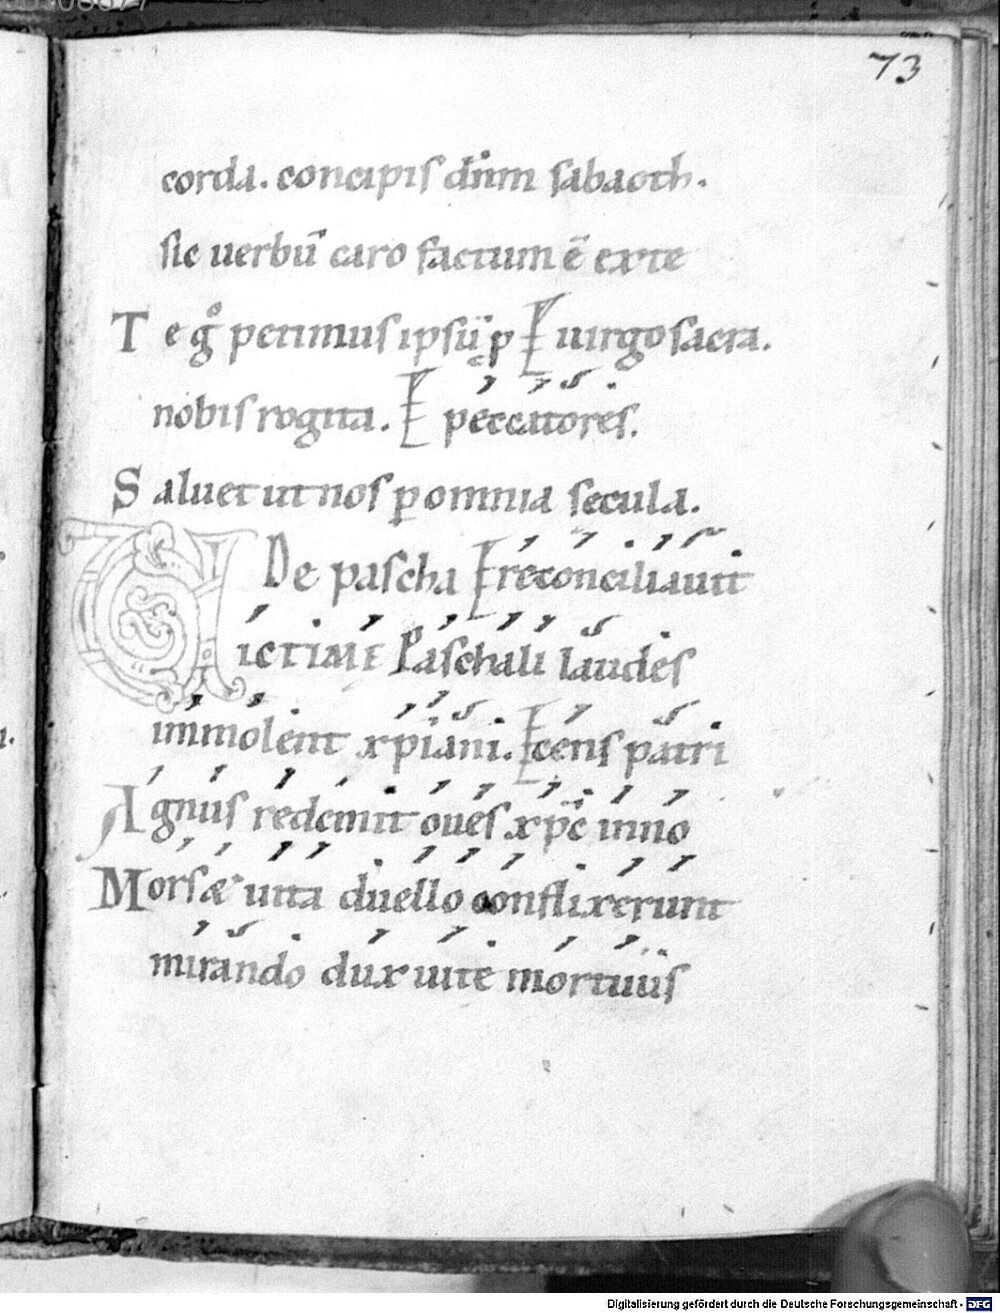 73
corda. concipis dn̄m sabaoth.
sic uerbū caro factum ē exte
Te gͦ petimus ipsū p uirgo sacra.
nobis rogita. peccatores.
Saluet ut nos ꝑ omnia secula.
De pascha reconciliauit
VICTIME Paschali laudes
immolent xpiani. cens patri
Agnus redemit oues xp̄c inno
Mors & uita duello conflixerunt
mirando dux uite mortuus
Digitalisierung gefördert durch die Deutsche Forschungsgemeinschaft - DFG